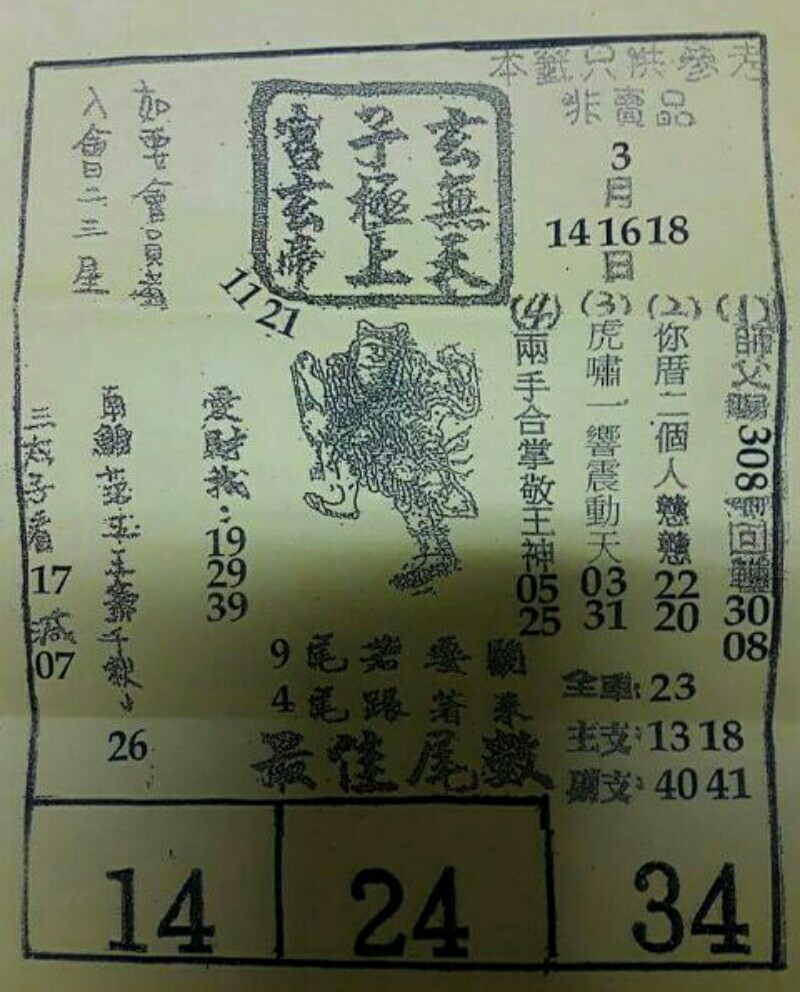 本籤只供參考
非賣品
3
月
14 16 18
日
玄無天
子極上
宮玄帝
11 21
如要會員
入會二三星
(1) 師父 308 回 30 08
(2) 你厝二個人戇戇 22 20
(3) 虎嘯一響震動天 03 31
(4) 兩手合掌敬王神 05 25
愛財找: 19 29 39
26
三太子看 17 減 07
9 尾若要
4 尾跟著來
最佳尾數
全車: 23
主支: 13 18
40 41
14
24
34